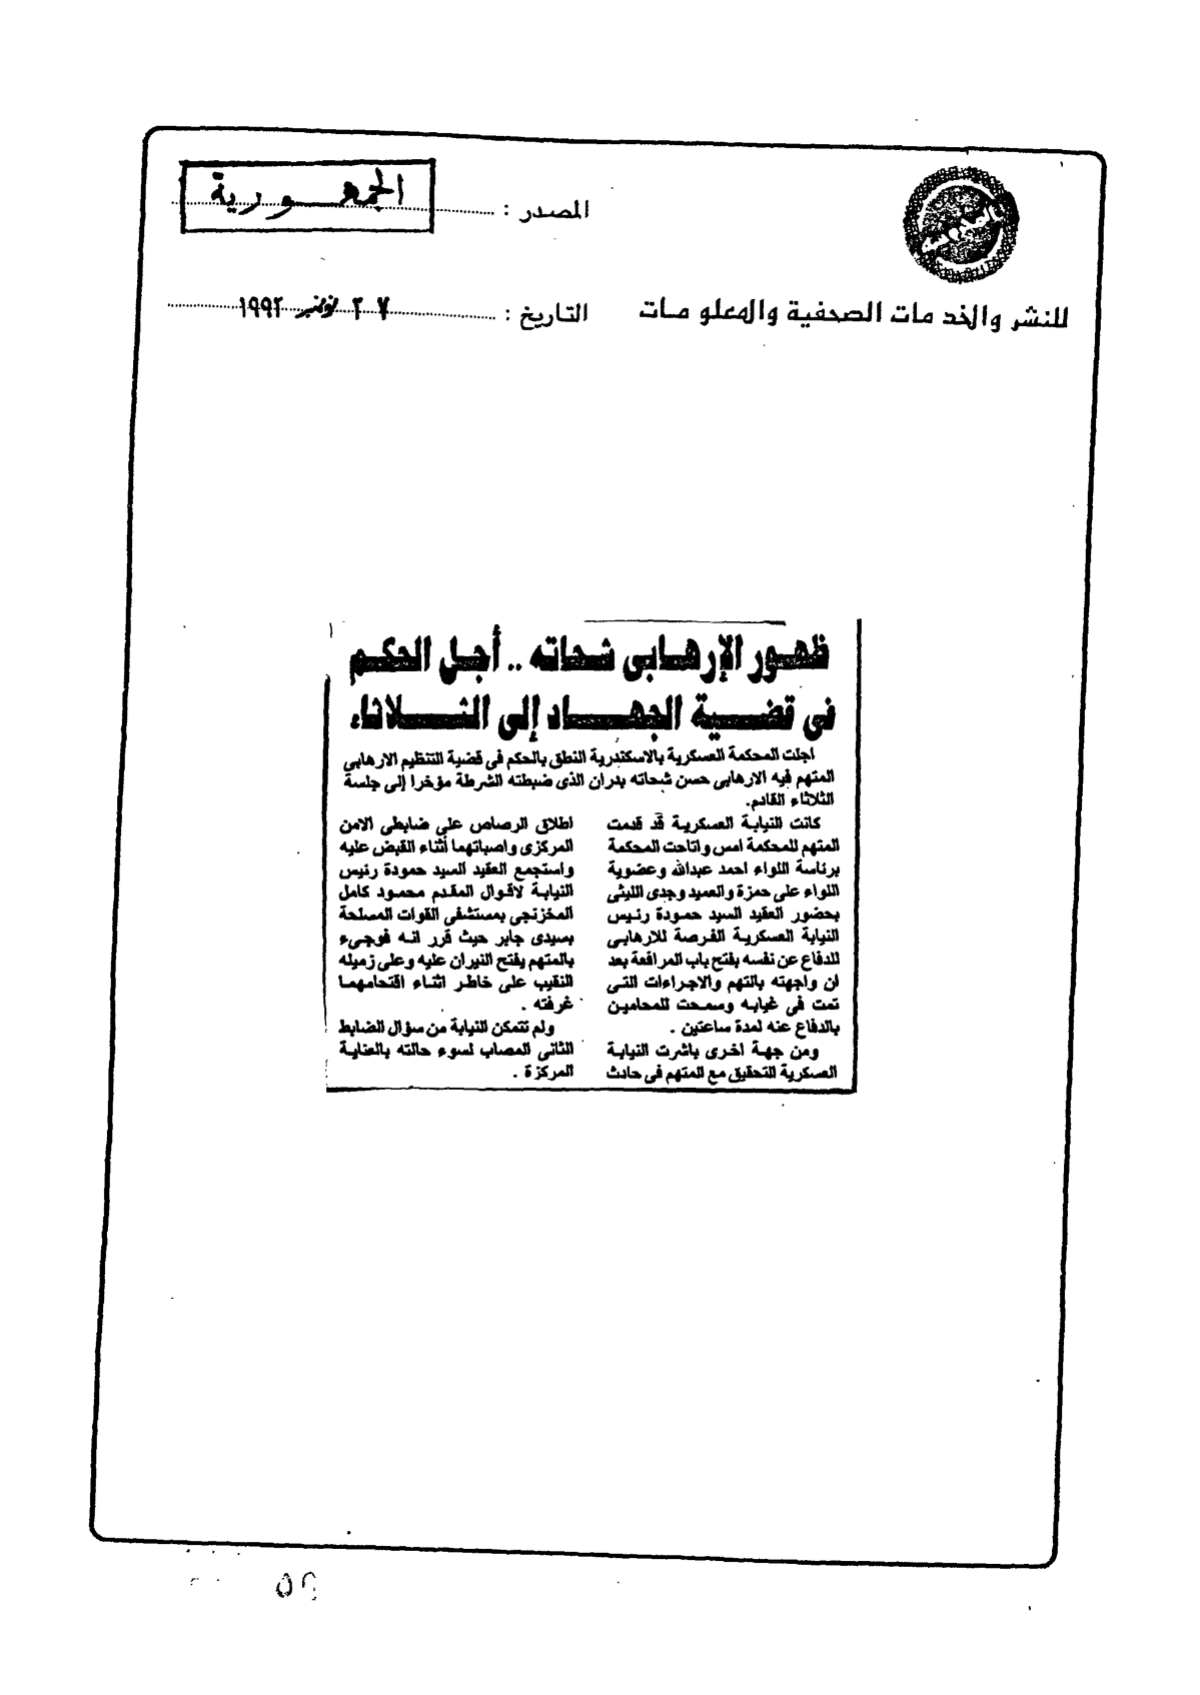 المصدر : الجمهورية
للنشر والخدمات الصحفية والمعلومات
التاريخ : ٢٧ نوفمبر ١٩٩٢
ظهور الإرهابى شحاته .. أجل الحكم
فى قضية الجهاد إلى الثلاثاء
اجلت المحكمة العسكرية بالاسكندرية النطق بالحكم فى قضية التنظيم الارهابى
المتهم فيه الارهابى حسن شحاته بدران الذى ضبطته الشرطة مؤخرا إلى جلسة
الثلاثاء القادم.
كانت النيابة العسكرية قد قدمت
المتهم للمحكمة امس واتاحت المحكمة
برئاسة اللواء احمد عبدالله وعضوية
اللواء على حمزة والعميد وجدى الليثى
بحضور العقيد السيد حمودة رئيس
النيابة العسكرية الفرصة للارهابى
للدفاع عن نفسه بفتح باب المرافعة بعد
ان واجهته بالتهم والاجراءات التى
تمت فى غيابه وسمحت للمحامين
بالدفاع عنه لمدة ساعتين .
ومن جهة اخرى باشرت النيابة
العسكرية التحقيق مع المتهم فى حادث
اطلاق الرصاص على ضابطى الامن
المركزى واصباتهما أثناء القبض عليه
واستجمع العقيد السيد حمودة رئيس
النيابة لاقوال المقدم محمود كامل
المخزنجى بمستشفى القوات المسلحة
بسيدى جابر حيث قرر انه فوجىء
بالمتهم يفتح النيران عليه وعلى زميله
النقيب على خاطر اثناء اقتحامهما
غرفته .
ولم تتمكن النيابة من سؤال الضابط
الثانى المصاب لسوء حالته بالعناية
المركزة .